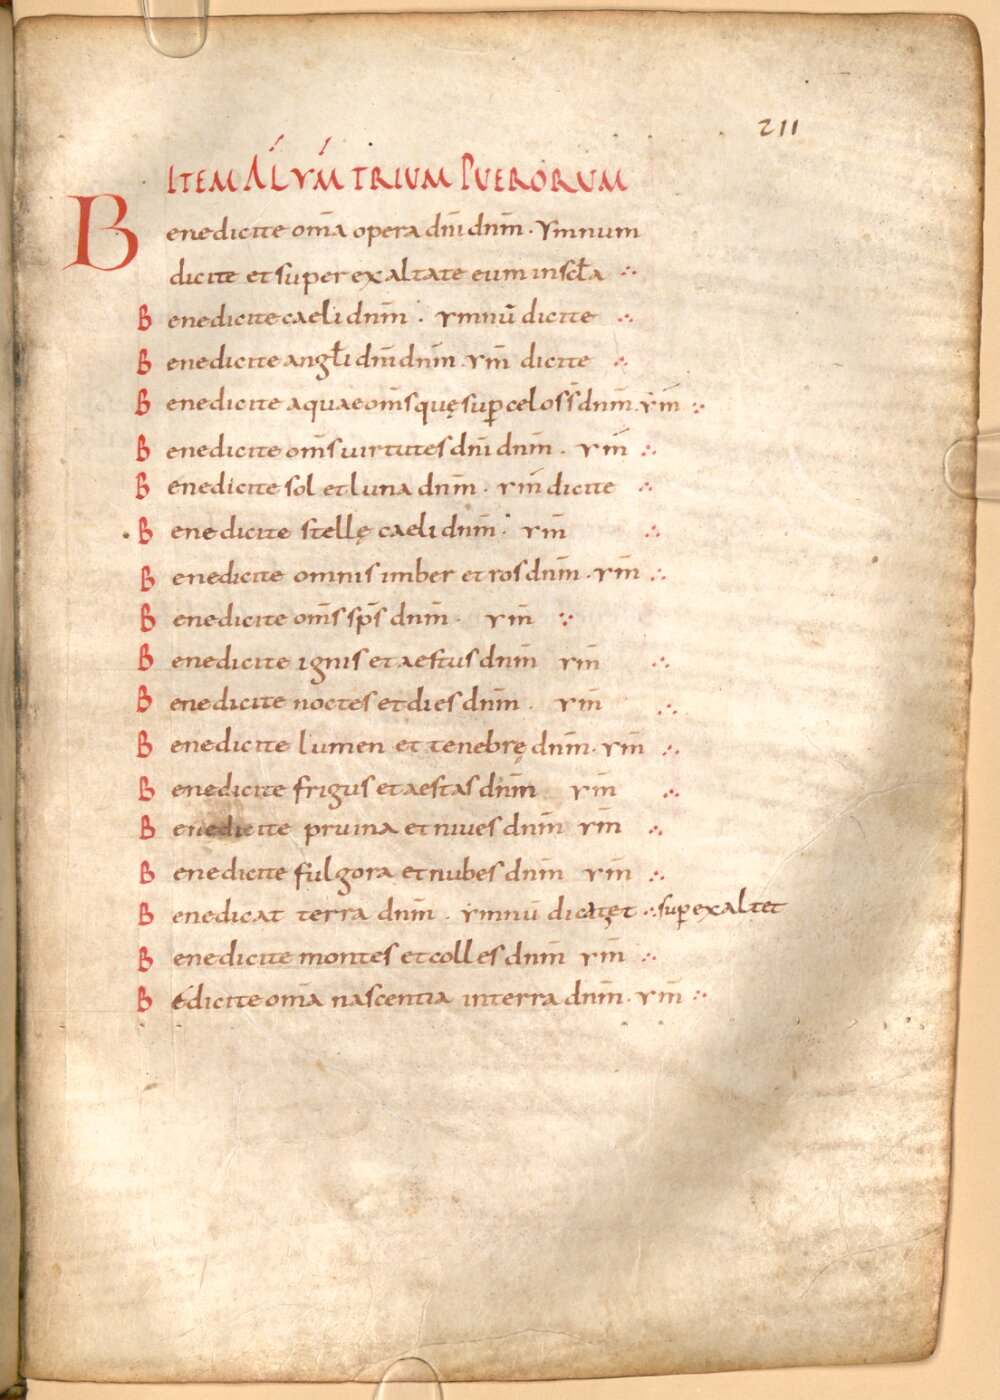 211
ITEM AL YM̄ TRIUM PUERORUM
Benedicite om̄a opera dn̄i dnm̄ · Ymnum
dicite et super exaltate eum in sct̄a ∴
Benedicite caeli dnm̄ · ymnū dicite ∴
Benedicite angłi dn̄i dnm̄ · ym̄ dicite ∴
Benedicite aquae om̄s quę sup̱ celos s̄ dnm̄ · ym̄ ∴
Benedicite om̄s uirtutes dn̄i dnm̄ · ym̄ ∴
Benedicite sol et luna dnm̄ · ym̄ dicite ∴
Benedicite stellę caeli dnm̄ · ym̄ ∴
Benedicite omnis imber et ros dnm̄ · ym̄ ∴
Benedicite om̄s sp̄s dnm̄ · ym̄ ∴
Benedicite ignis et aestus dnm̄ ym̄ ∴
Benedicite noctes et dies dnm̄ · ym̄ ∴
Benedicite lumen et tenebrę dnm̄ · ym̄ ∴
Benedicite frigus et aestas dnm̄ ym̄ ∴
Benedicite pruina et niues dnm̄ ym̄ ∴
Benedicite fulgora et nubes dnm̄ ym̄ ∴
Benedicat terra dnm̄ · ymnū dicat et ∴ sup̱exaltet
Benedicite montes et colles dnm̄ ym̄ ∴
B Edicite om̄a nascentia in terra dnm̄ · ym̄ ∴